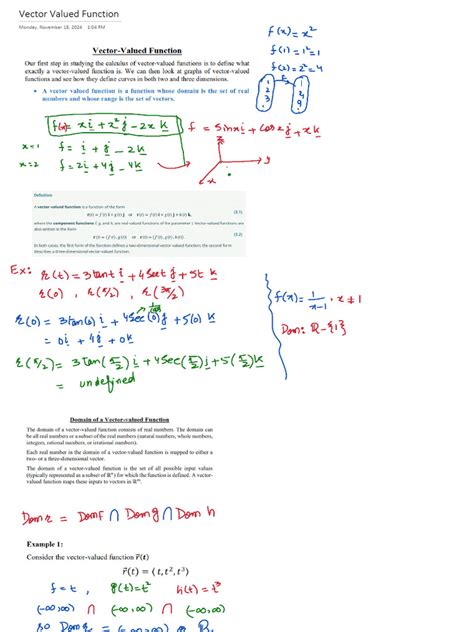 Vector Valued Function
Monday, November 18, 2024 1:04 PM
Vector-Valued Function
Our first step in studying the calculus of vector-valued functions is to define what
exactly a vector-valued function is. We can then look at graphs of vector-valued
functions and see how they define curves in both two and three dimensions.
• A vector valued function is a function whose domain is the set of real
numbers and whose range is the set of vectors.
f(x) = x²
f(1) = 1² = 1
f(2) = 2² = 4
f
1 2 3
1 2 9
f(x) = x i + x² j - 2x k
f = sin x i + cos 2x j + x k
x = 1 f = i + j - 2k
x = 2 f = 2i + 4j - 4k
z
y
x
Definition
A vector-valued function is a function of the form
r(t) = f(t) i + g(t) j or r(t) = f(t) i + g(t) j + h(t) k, (3.1)
where the component functions f, g, and h, are real-valued functions of the parameter t. Vector-valued functions are
also written in the form
r(t) = ⟨f(t), g(t)⟩ or r(t) = ⟨f(t), g(t), h(t)⟩. (3.2)
In both cases, the first form of the function defines a two-dimensional vector-valued function; the second form
describes a three-dimensional vector-valued function.
Ex: r(t) = 3 tan t i + 4 sec t j + 5t k
r(0) , r(π/2) , r(3π/2)
r(0) = 3 tan(0) i + 4 sec(0) j + 5(0) k
= 0i + 4j + 0k
r(π/2) = 3 tan(π/2) i + 4 sec(π/2) j + 5(π/2) k
= undefined
f(x) = 1/(x-1) , x ≠ 1
Dom: R - {1}
Domain of a Vector-valued Function
The domain of a vector-valued function consists of real numbers. The domain can
be all real numbers or a subset of the real numbers (natural numbers, whole numbers,
integers, rational numbers, or irrational numbers).
Each real number in the domain of a vector-valued function is mapped to either a
two- or a three-dimensional vector.
The domain of a vector-valued function is the set of all possible input values
(typically represented as a subset of ℝⁿ) for which the function is defined. A vector-
valued function maps these inputs to vectors in ℝᵐ.
Dom r = Dom f ∩ Dom g ∩ Dom h
Example 1:
Consider the vector-valued function r⃗(t)
r⃗(t) = ⟨t, t², t³⟩
f = t , g(t) = t² h(t) = t³
(-∞,∞) ∩ (-∞,∞) ∩ (-∞,∞)
so Dom r = (-∞,∞)